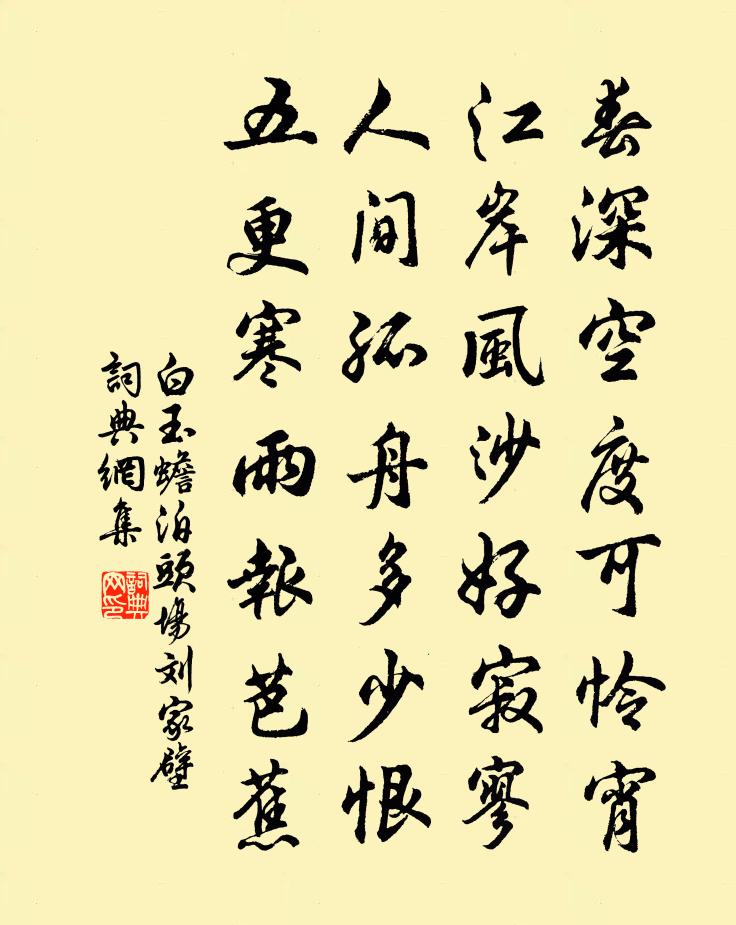 春深空度可怜宵
江岸風沙好寂寥
人间孤舟多少恨
五更寒雨報芭蕉
白玉蟾泊頭場刘家壁
詞典網集
詞典网印